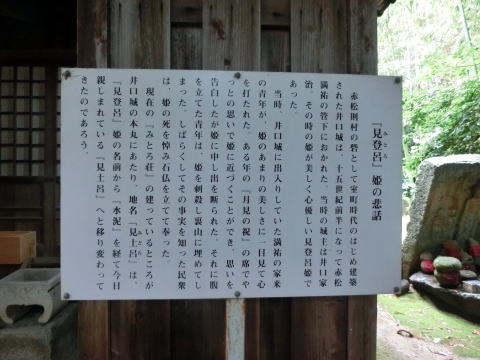 『見登呂』姫の悲話
みとろ
赤松則村の砦として室町時代のはじめ建築
された井口城は、十五世紀前半になって赤松
満祐の管下におかれた。当時の城主は井口家
治。その時の姫が美しく心優しい見登呂姫で
あった。
当時、井口城に出入りしていた満祐の家来
の青年が、姫のあまりの美しさに一目見て心
を打たれた。ある年の『月見の祝』の席でや
っとの思いで姫に近づくことができ、思いを
告白したが姫に申し出を断られた。それに腹
を立てた青年は、姫を刺殺し裏山に埋めてし
まった。しばらくしてその事実を知った民衆
は、姫の死を悼み石仏を立てて奉った。
現在の『みとろ荘』の建っているところが
井口城の本丸にあたり、地名『見土呂』は、
『見登呂』姫の名前から『水泥』を経て今日
親しまれている『見土呂』へと移り変わって
きたのであろう。